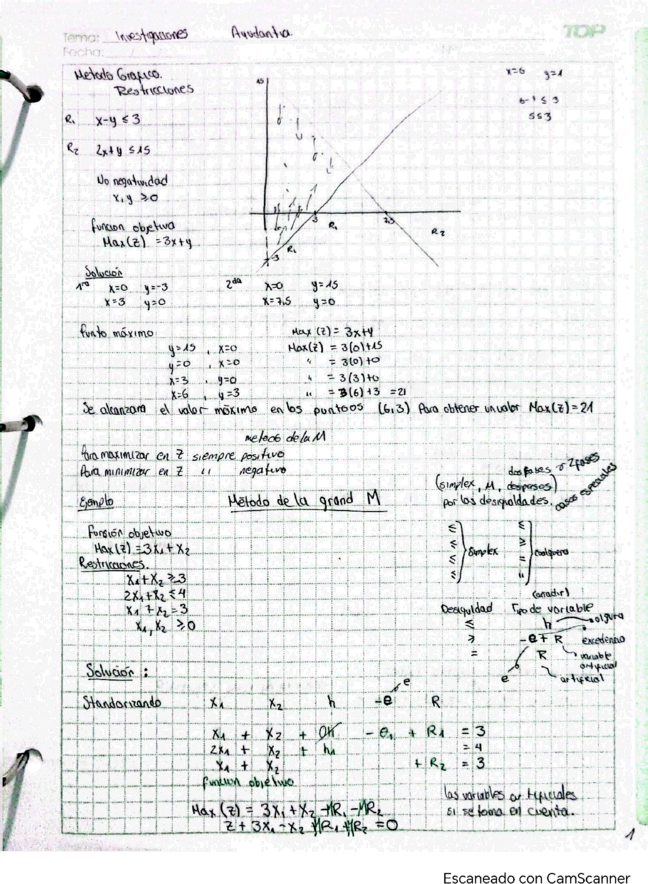 Tema: Investigaciones Ayudantia TOP
Fecha:
Metodo Grafico.
Restricciones
R₁ x-y ≤ 3
R₂ 2x+y ≤ 15
No negatividad
x, y ≥ 0
funcion objetiva
Max(z) = 3x+y
x=6 y=1
6-1 ≤ 3
5≤3
15
3 R₁ 7.5 R₂
-3 R₁
Solución
1ra x=0 y=-3 2da x=0 y=15
x=3 y=0 x=7,5 y=0
Punto máximo Max (z) = 3x+y
y=15 , x=0 Max(z) = 3(0)+15
y=0 , x=0 " = 3(0)+0
x=3 , y=0 " = 3(3)+0
x=6 , y=3 " = 3(6)+3 = 21
Se alcanzara el valor máximo en los puntoos (6,3) Para obtener un valor Max(z)=21
metodo de la M
Para maximizar en Z siempre positivo
Para minimizar en Z " negativo
dos fases o 2 fases
(simplex, M, dosfases)
por las desigualdades. casos especiales
Ejemplo Método de la grand M
Función objetivo
Max(z) = 3x₁ + x₂
Restricciones.
x₁+x₂ ≥ 3
2x₁+x₂ ≤ 4
x₁ + x₂ = 3
x₁, x₂ ≥ 0
≤ ≤
≤ ≥
≤ simplex = cualquiera
≤ "
(añadir)
Desigualdad Tipo de variable
≤ h holgura
≥ -e+R excedencia
= R variable artificial
e artificial
Solución :
Standarizando x₁ x₂ h -e R
e
x₁ + x₂ + 0h - e₁ + R₁ = 3
2x₁ + x₂ + h₁ = 4
x₁ + x₂ + R₂ = 3
funcion objetivo
Max (z) = 3x₁ + x₂ - MR₁ - MR₂
z + 3x₁ - x₂ MR₁ + MR₂ = 0
las variables artificiales
si se toma en cuenta.
1
Escaneado con CamScanner